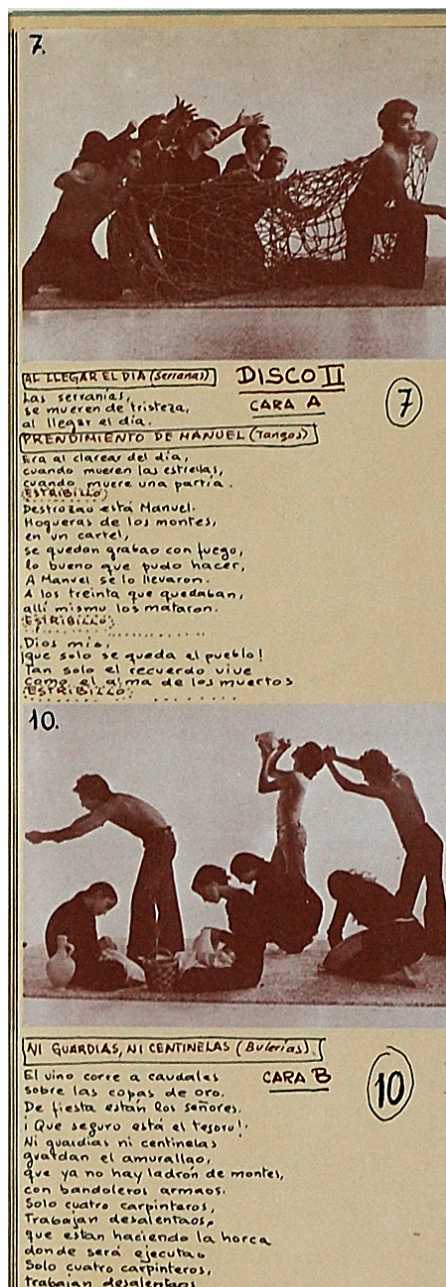 7.
AL LLEGAR EL DIA (Serranas)
DISCO II
CARA A
7
Las serranías,
se mueren de tristeza,
al llegar el día.
PRENDIMIENTO DE MANUEL (Tangos)
Era al clarear del día,
cuando mueren las estrellas,
cuando muere una partía.
(ESTRIBILLO)
Destrozao está Manuel.
Hogueras de los montes,
en un cartel,
se quedan grabao con fuego,
lo bueno que pudo hacer,
A Manuel se lo llevaron.
A los treinta que quedaban,
allí mismu los mataron.
(ESTRIBILLO)
Dios mío,
¡que solo se queda el pueblo!
Tan solo el recuerdo vive
como el alma de los muertos
(ESTRIBILLO)
10.
NI GUARDIAS, NI CENTINELAS (Bulerías)
CARA B
10
El vino corre a caudales
sobre las copas de oro.
De fiesta están los señores.
¡Que seguro está el tesoro!
Ni guardias ni centinelas
guardan el amurallao,
que ya no hay ladrón de montes,
con bandoleros armaos.
Solo cuatro carpinteros,
Trabajan desalentaos,
que estan haciendo la horca
donde será ejecutao
Solo cuatro carpinteros,
trabajan desalentaos